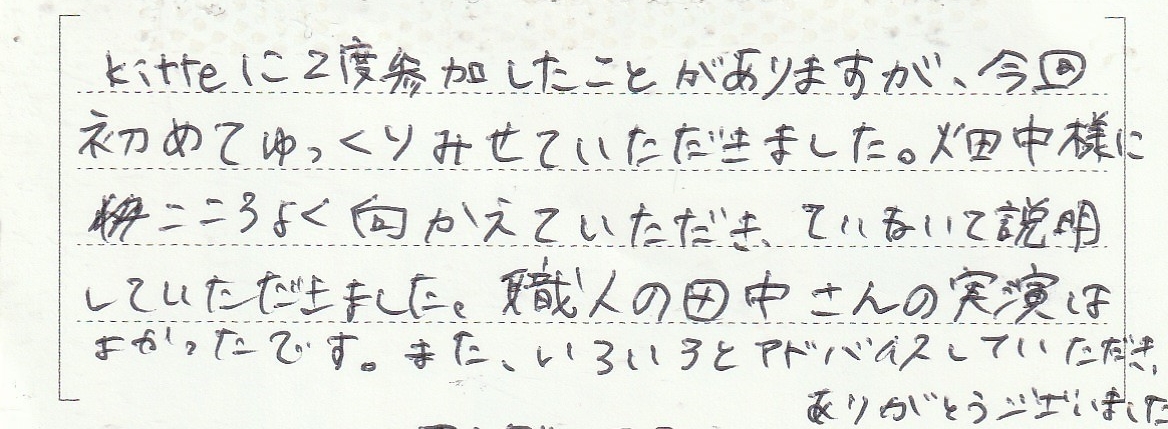 kitteに2度参加したことがありますが、今回
初めてゆっくりみせていただきました。畑中様に
こころよく向かえていただき、ていねいて説明
していただきました。職人の田中さんの実演は
よかったです。また、いろいろとアドバイスしていただき、
ありがとうございました